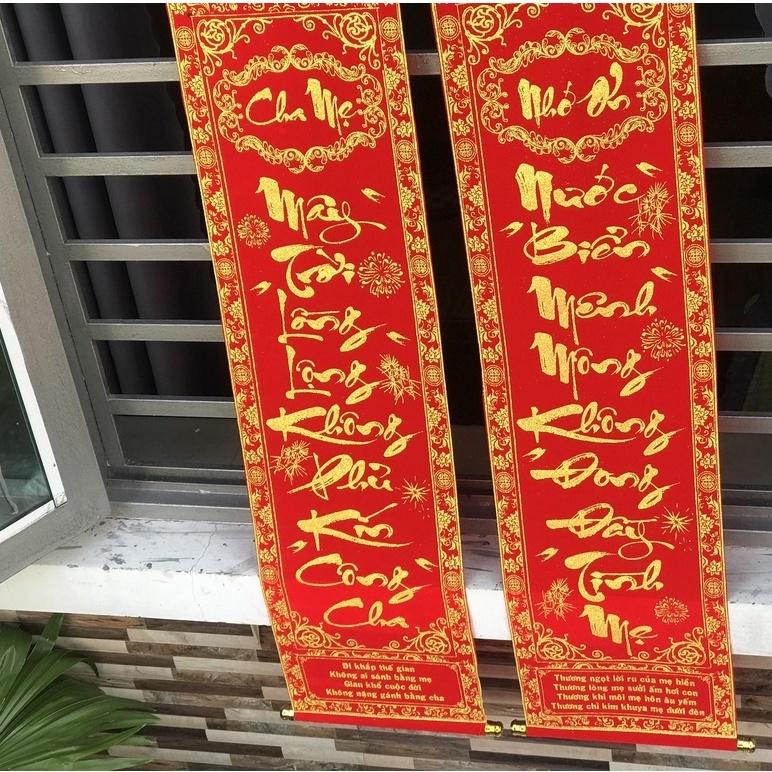 Cha Mẹ
Mây
Trời
Lồng
Lộng
Không
Phủ
Kín
Công
Cha
Đi khắp thế gian
Không ai sánh bằng mẹ
Gian khổ cuộc đời
Không nặng gánh bằng cha
Nhớ Ơn
Nước
Biển
Mênh
Mông
Không
Đong
Đầy
Tình
Mẹ
Thương ngọt lời ru của mẹ hiền
Thương lòng mẹ sưởi ấm hơi con
Thương khi môi mẹ hôn âu yếm
Thương chỉ kim khuya mẹ dưới đèn